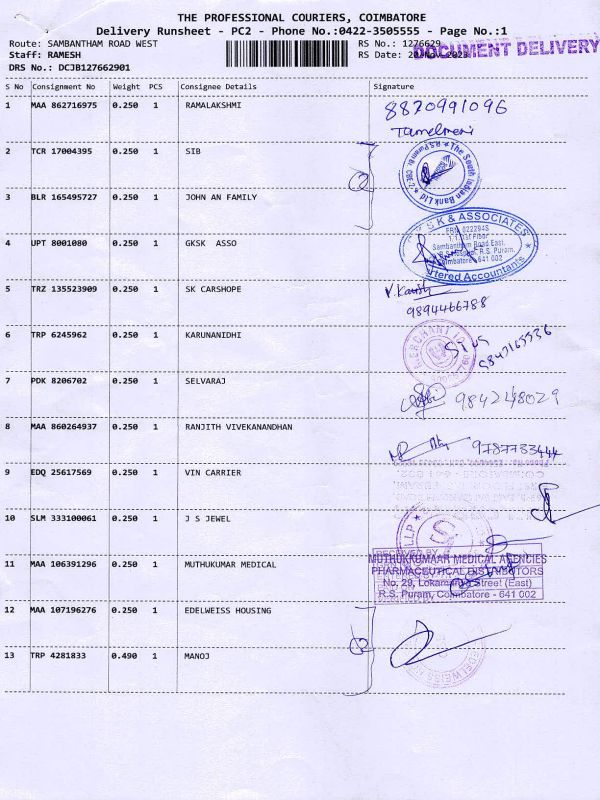 THE PROFESSIONAL COURIERS, COIMBATORE
Delivery Runsheet - PC2 - Phone No.:0422-3505555 - Page No.:1
Route: SAMBANTHAM ROAD WEST
RS No.: 1276629
DOCUMENT DELIVERY
Staff: RAMESH
RS Date: 20 Nov 2023
DRS No.: DCJB127662901
S No Consignment No Weight PCS Consignee Details Signature
1 MAA 862716975 0.250 1 RAMALAKSHMI
8870991096
2 TCR 17004395 0.250 1 SIB
The South Indian Bank Ltd
R.S. Puram Br. CBE-2
3 BLR 165495727 0.250 1 JOHN AN FAMILY
S K & ASSOCIATES
FRN 022294S
1st Floor
Sambantham Road East,
R.S. Puram,
Coimbatore - 641 002
Chartered Accountants
4 UPT 8001080 0.250 1 GKSK ASSO
5 TRZ 135523909 0.250 1 SK CARSHOPE
9894466788
6 TRP 6245962 0.250 1 KARUNANIDHI
7 PDK 8206702 0.250 1 SELVARAJ
9842148029
8 MAA 860264937 0.250 1 RANJITH VIVEKANANDHAN
9787783444
9 EDQ 25617569 0.250 1 VIN CARRIER
10 SLM 333100061 0.250 1 J S JEWEL
LLP
11 MAA 106391296 0.250 1 MUTHUKUMAR MEDICAL
RECEIVED BY
MUTHUKKUMAAR MEDICAL AGENCIES
PHARMACEUTICAL DISTRIBUTORS
No. 29, Lokamanya Street (East)
R.S. Puram, Coimbatore - 641 002
12 MAA 107196276 0.250 1 EDELWEISS HOUSING
13 TRP 4281833 0.490 1 MANOJ